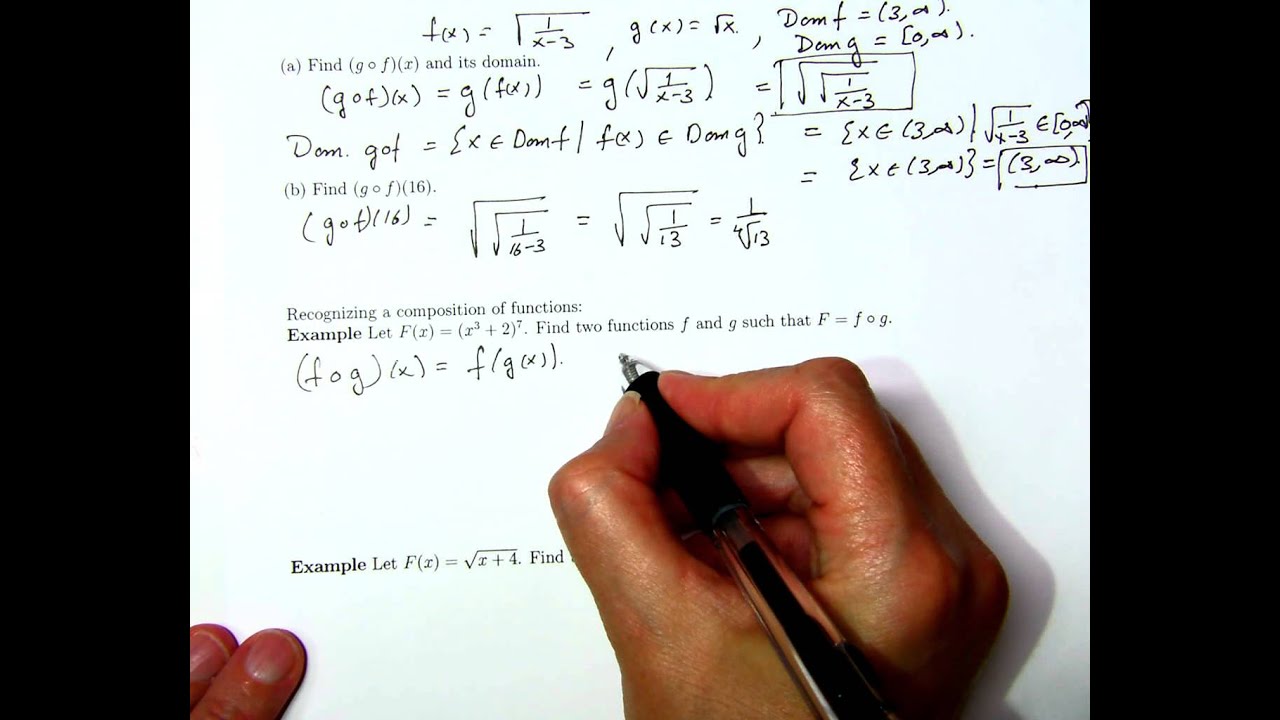 f(x) = √(1/(x-3)) , g(x) = √x. , Dom f = (3, ∞).
Dom g = [0, ∞).
(a) Find (g ∘ f)(x) and its domain.
(g∘f)(x) = g(f(x)) = g(√(1/(x-3))) = √(√(1/(x-3)))
Dom. g∘f = {x ∈ Dom f | f(x) ∈ Dom g} = {x ∈ (3,∞) | √(1/(x-3)) ∈ [0,∞)
= {x ∈ (3,∞)} = (3, ∞).
(b) Find (g ∘ f)(16).
(g∘f)(16) = √(√(1/(16-3))) = √(√(1/13)) = 1/∜13
Recognizing a composition of functions:
Example Let F(x) = (x³ + 2)⁷. Find two functions f and g such that F = f ∘ g.
(f∘g)(x) = f(g(x)).
Example Let F(x) = √(x + 4). Find